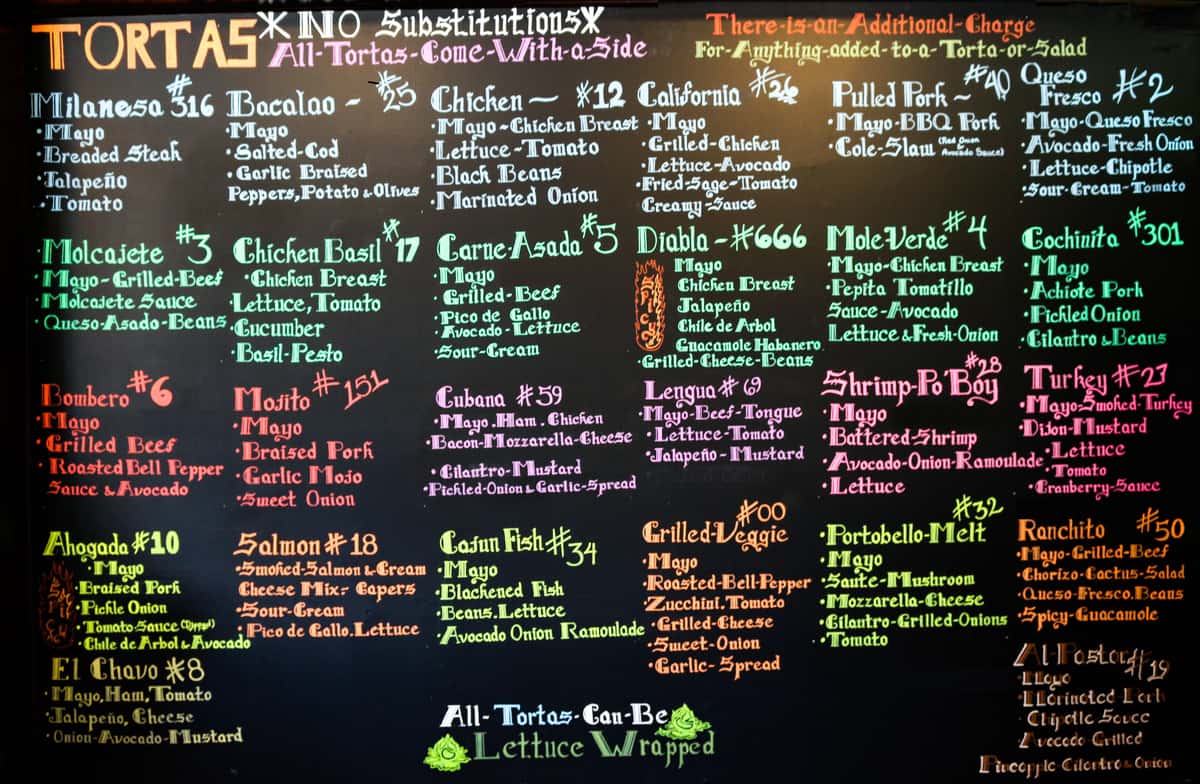 TORTAS
*NO Substitutions*
All-Tortas-Come-With-a-Side
There-is-an-Additional-Charge
For-Anything-added-to-a-Torta-or-Salad
Milanesa #316
·Mayo
·Breaded Steak
·Jalapeño
·Tomato
Bacalao - #25
·Mayo
·Salted-Cod
·Garlic Braised
Peppers, Potato & Olives
Chicken - #12
·Mayo-Chicken Breast
·Lettuce-Tomato
·Black Beans
·Marinated Onion
California #26
·Mayo
·Grilled-Chicken
·Lettuce-Avocado
·Fried-Sage-Tomato
Creamy-Sauce
Pulled Pork - #40
·Mayo-BBQ Pork
·Cole-Slaw (Red Onion
Avocado Sauce)
Queso
Fresco #2
·Mayo-Queso Fresco
·Avocado-Fresh Onion
·Lettuce-Chipotle
·Sour-Cream-Tomato
·Molcajete #3
·Mayo-Grilled-Beef
·Molcajete Sauce
·Queso-Asado-Beans
Chicken Basil #17
·Chicken Breast
·Lettuce, Tomato
·Cucumber
·Basil-Pesto
Carne-Asada #5
·Mayo
·Grilled-Beef
·Pico de Gallo
·Avocado-Lettuce
·Sour-Cream
Diabla - #666
Spicy
Mayo
Chicken Breast
Jalapeño
Chile de Arbol
Guacamole Habanero
·Grilled-Cheese-Beans
Mole-Verde #4
·Mayo-Chicken Breast
·Pepita Tomatillo
Sauce-Avocado
Lettuce & Fresh-Onion
Cochinita #301
·Mayo
·Achiote Pork
·Pickled Onion
·Cilantro & Beans
Bombero #6
·Mayo
·Grilled Beef
·Roasted Bell Pepper
Sauce & Avocado
Mojito #151
·Mayo
·Braised Pork
·Garlic Mojo
·Sweet Onion
Cubana #59
·Mayo.Ham.Chicken
·Bacon-Mozzarella-Cheese
·Cilantro-Mustard
·Pickled-Onion & Garlic-Spread
Lengua #69
·Mayo-Beef-Tongue
·Lettuce-Tomato
·Jalapeño-Mustard
Shrimp-Po'Boy #28
·Mayo
·Battered-Shrimp
·Avocado-Onion-Ramoulade
·Lettuce
Turkey #27
·Mayo-Smoked-Turkey
·Dijon-Mustard
·Lettuce
·Tomato
·Cranberry-Sauce
Ahogada #10
Spicy
·Mayo
·Braised Pork
·Pickle Onion
·Tomato-Sauce (Dipped)
·Chile de Arbol & Avocado
Salmon #18
·Smoked-Salmon & Cream
Cheese Mix-Capers
·Sour-Cream
·Pico de Gallo.Lettuce
Cajun Fish #34
·Mayo
·Blackened Fish
·Beans.Lettuce
·Avocado Onion Ramoulade
Grilled-Veggie #00
·Mayo
·Roasted-Bell-Pepper
·Zucchini.Tomato
·Grilled-Cheese
·Sweet-Onion
·Garlic-Spread
·Portobello-Melt #32
·Mayo
·Saute-Mushroom
·Mozzarella-Cheese
·Cilantro-Grilled-Onions
·Tomato
Ranchito #50
·Mayo-Grilled-Beef
·Chorizo-Cactus-Salad
·Queso-Fresco.Beans
·Spicy-Guacamole
El Chavo #8
·Mayo, Ham, Tomato
·Jalapeño, Cheese
·Onion-Avocado-Mustard
All-Tortas-Can-Be
Lettuce Wrapped
Al-Pastor #19
·Mayo
·Marinated Pork
·Chipotle Sauce
·Avocado-Grilled
Pineapple Cilantro & Onion